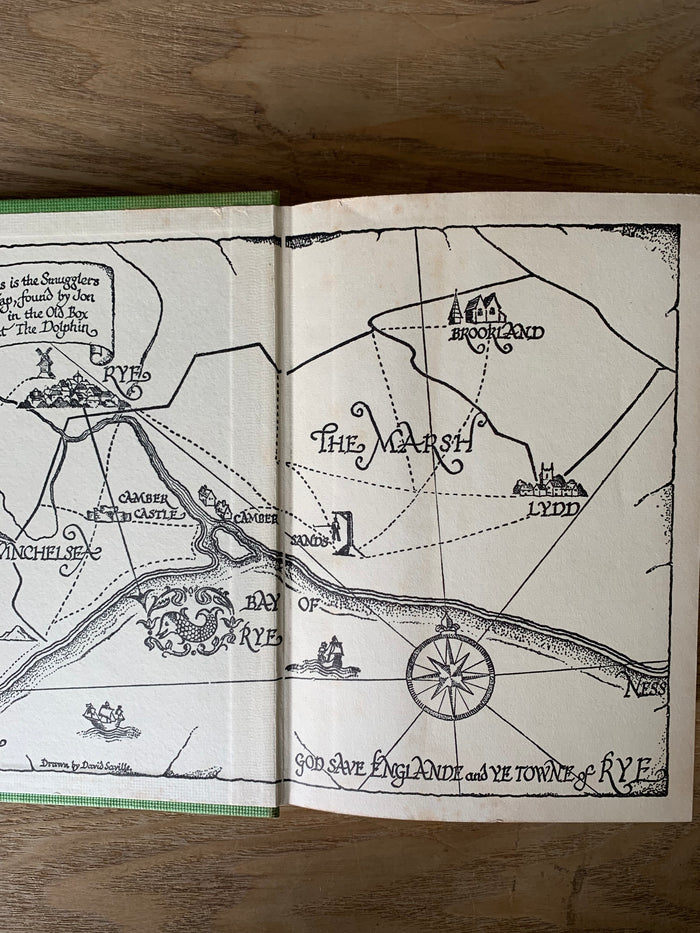 s is the Smugglers
ap, found by Jon
in the Old Box
t The Dolphin
RYE
BROOKLAND
THE MARSH
CAMBER
CASTLE
CAMBER
SANDS
LYDD
INCHELSEA
BAY OF
RYE
NESS
Drawn by David Saville.
GOD SAVE ENGLANDE and YE TOWNE of RYE